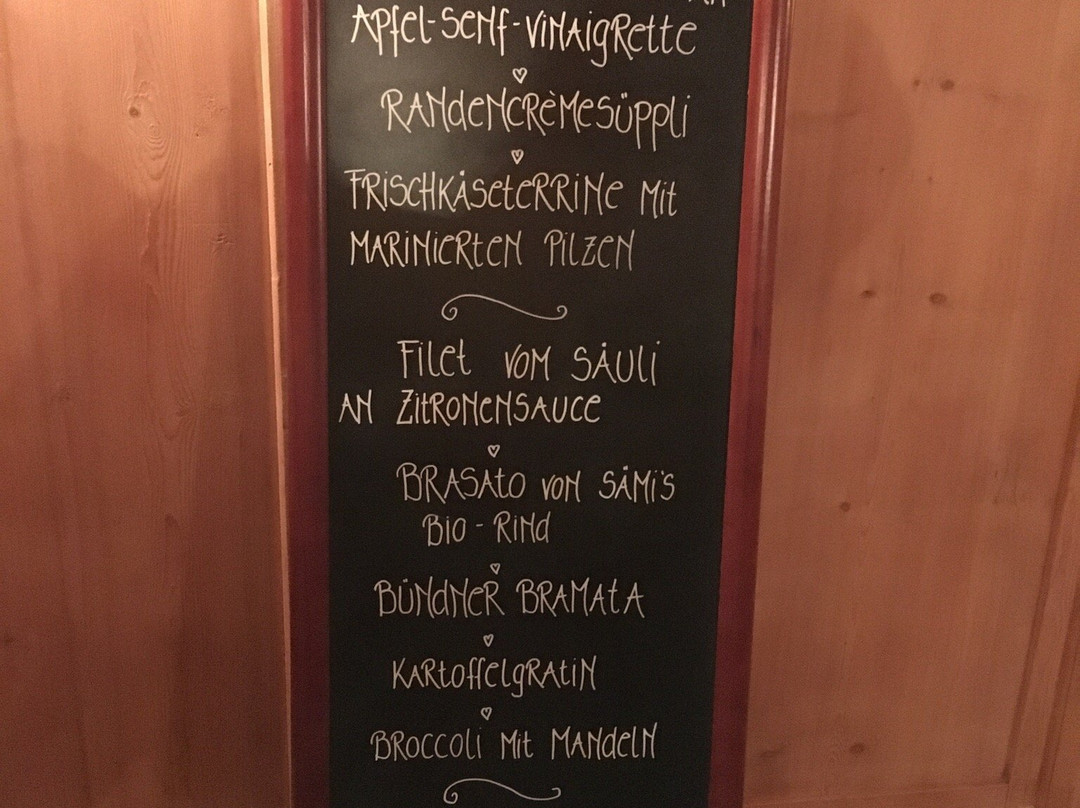 APfel-Senf-Vinaigrette
Randencrèmesüppli
Frischkäseterrine mit
marinierten Pilzen
Filet vom Säuli
an Zitronensauce
Brasato von Sämi's
Bio - Rind
Bündner Bramata
Kartoffelgratin
Broccoli mit Mandeln